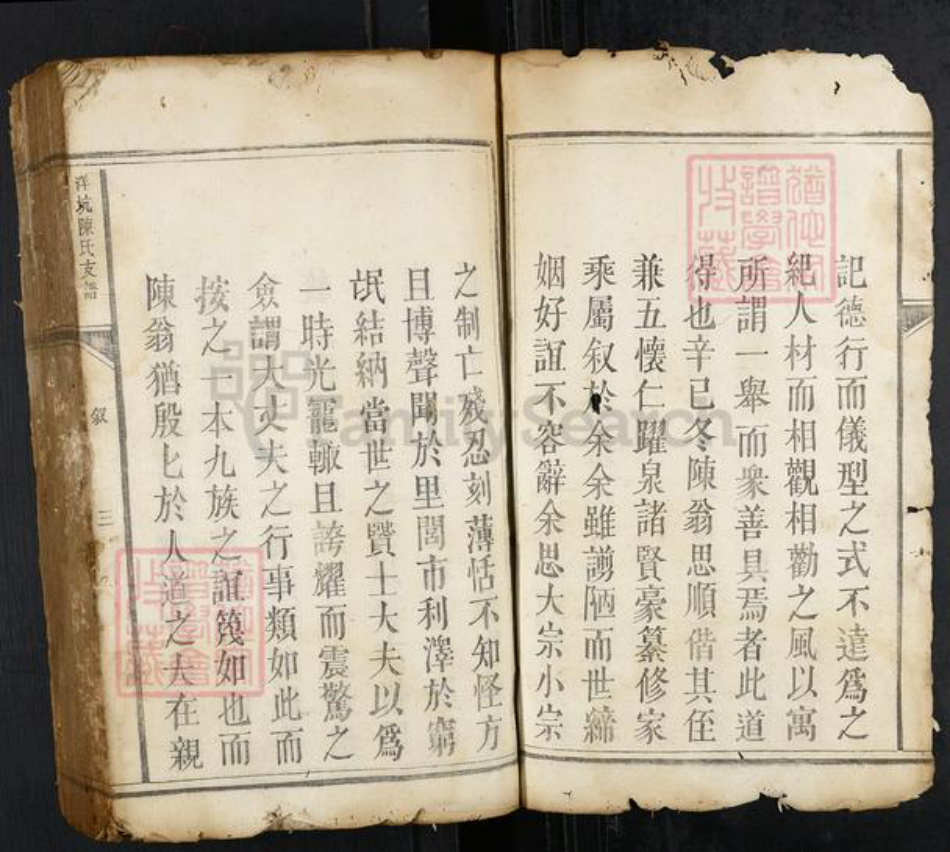 記德行而儀型之式不違爲之
紀人材而相觀相勸之風以寓
所謂一舉而衆善具焉者此道
得也辛巳冬陳翁思順偕其侄
兼五懷仁躍泉諸賢豪纂修家
乘屬叙於余余雖謭陋而世締
姻好誼不容辭余思大宗小宗
之制亡殘忍刻薄恬不知怪方
且博聲聞於里閭市利澤於窮
氓結納當世之賢士大夫以爲
一時光寵輙且誇耀而震驚之
僉謂大丈夫之行事類如此而
按之一本九族之誼篾如也而
陳翁猶殷匕於人道之大在親
洋坑陳氏支譜
叙
三
猶他
譜學會
收藏
譜學會
收藏
FamilySearch